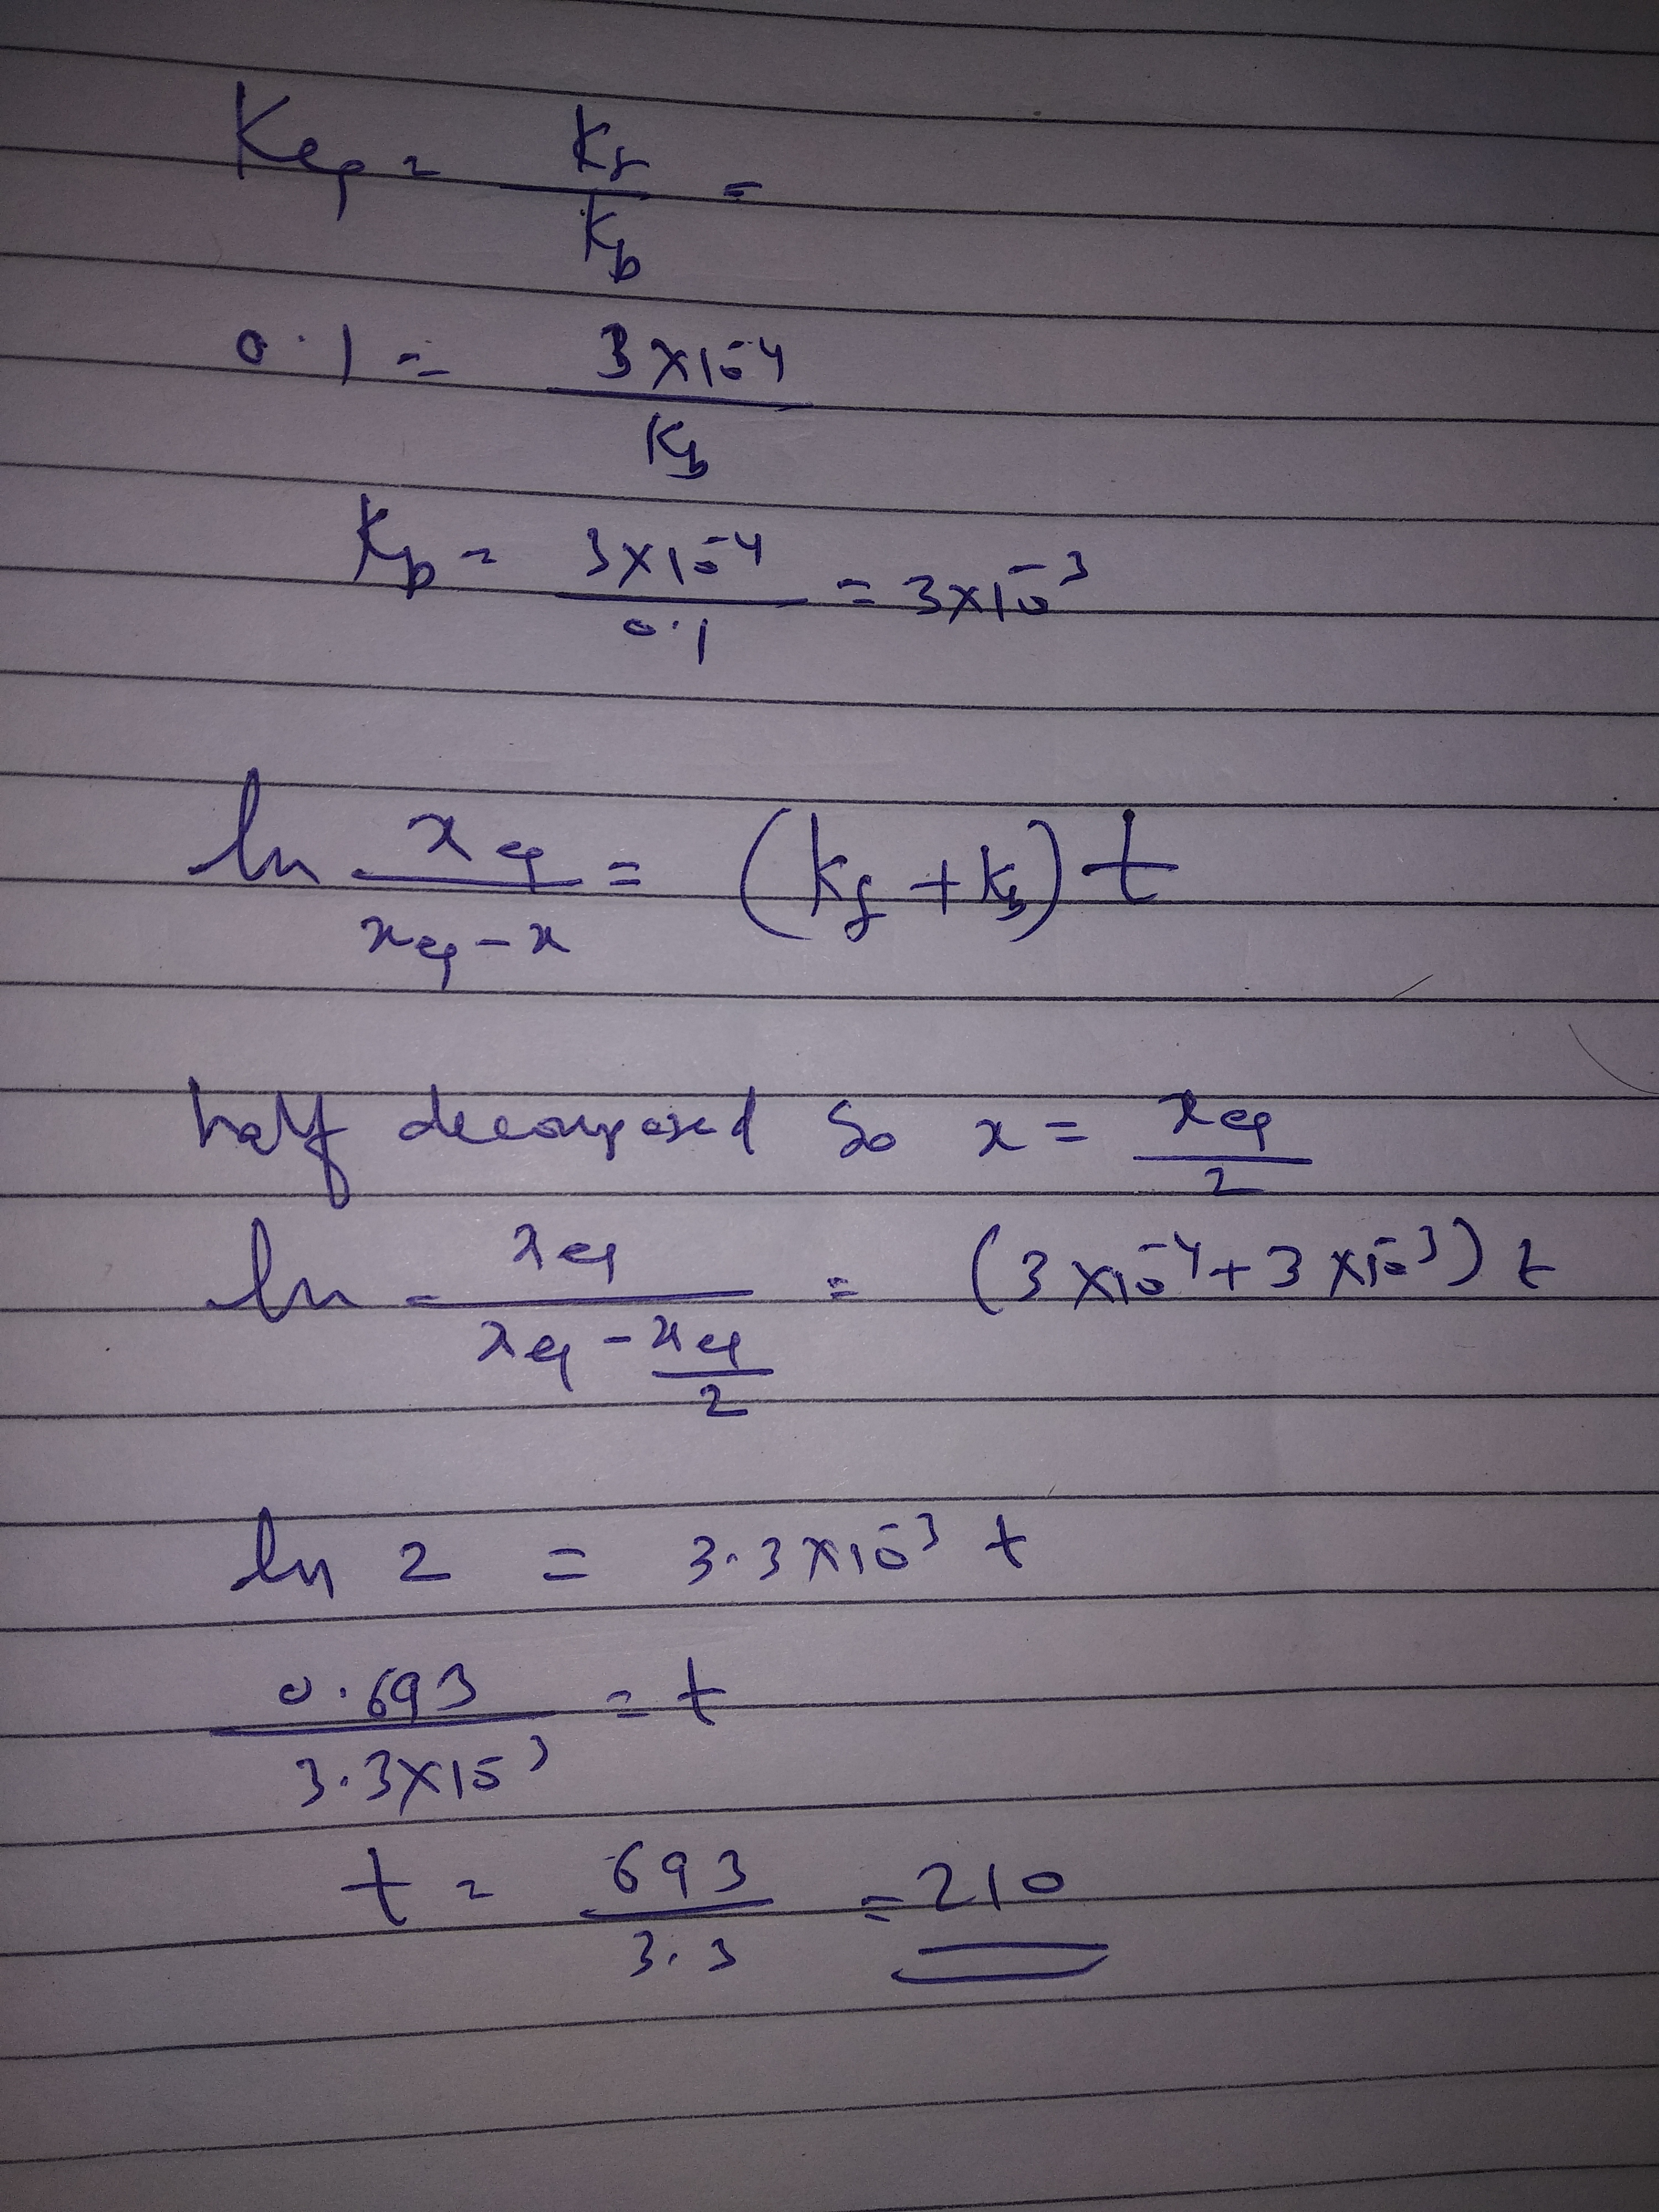 Keq = Kf / Kb =
0.1 = 3×10⁻⁴ / Kb
Kb = 3×10⁻⁴ / 0.1 = 3×10⁻³
ln xeq / xeq-x = (Kf + Kb) t
half decomposed So x = xeq / 2
ln xeq / xeq - xeq / 2 = (3×10⁻⁴ + 3×10⁻³) t
ln 2 = 3.3×10⁻³ t
0.693 / 3.3×10⁻³ = t
t = 693 / 3.3 = 210